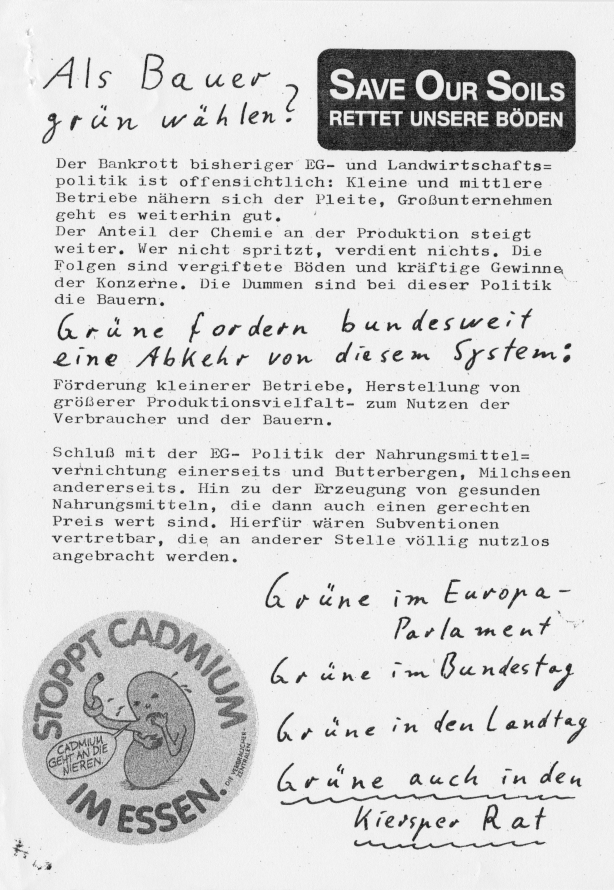 Als Bauer
grün wählen?
SAVE OUR SOILS
RETTET UNSERE BÖDEN
Der Bankrott bisheriger EG- und Landwirtschafts=
politik ist offensichtlich: Kleine und mittlere
Betriebe nähern sich der Pleite, Großunternehmen
geht es weiterhin gut.
Der Anteil der Chemie an der Produktion steigt
weiter. Wer nicht spritzt, verdient nichts. Die
Folgen sind vergiftete Böden und kräftige Gewinne
der Konzerne. Die Dummen sind bei dieser Politik
die Bauern.
Grüne fordern bundesweit
eine Abkehr von diesem System:
Förderung kleinerer Betriebe, Herstellung von
größerer Produktionsvielfalt- zum Nutzen der
Verbraucher und der Bauern.
Schluß mit der EG- Politik der Nahrungsmittel=
vernichtung einerseits und Butterbergen, Milchseen
andererseits. Hin zu der Erzeugung von gesunden
Nahrungsmitteln, die dann auch einen gerechten
Preis wert sind. Hierfür wären Subventionen
vertretbar, die an anderer Stelle völlig nutzlos
angebracht werden.
Grüne im Europa-
Parlament
Grüne im Bundestag
Grüne in den Landtag
Grüne auch in den
Kiersper Rat
STOPPT CADMIUM
CADMIUM
GEHT AN DIE
NIEREN.
IM ESSEN.
DIE VERBRAUCHER-
ZENTRALEN